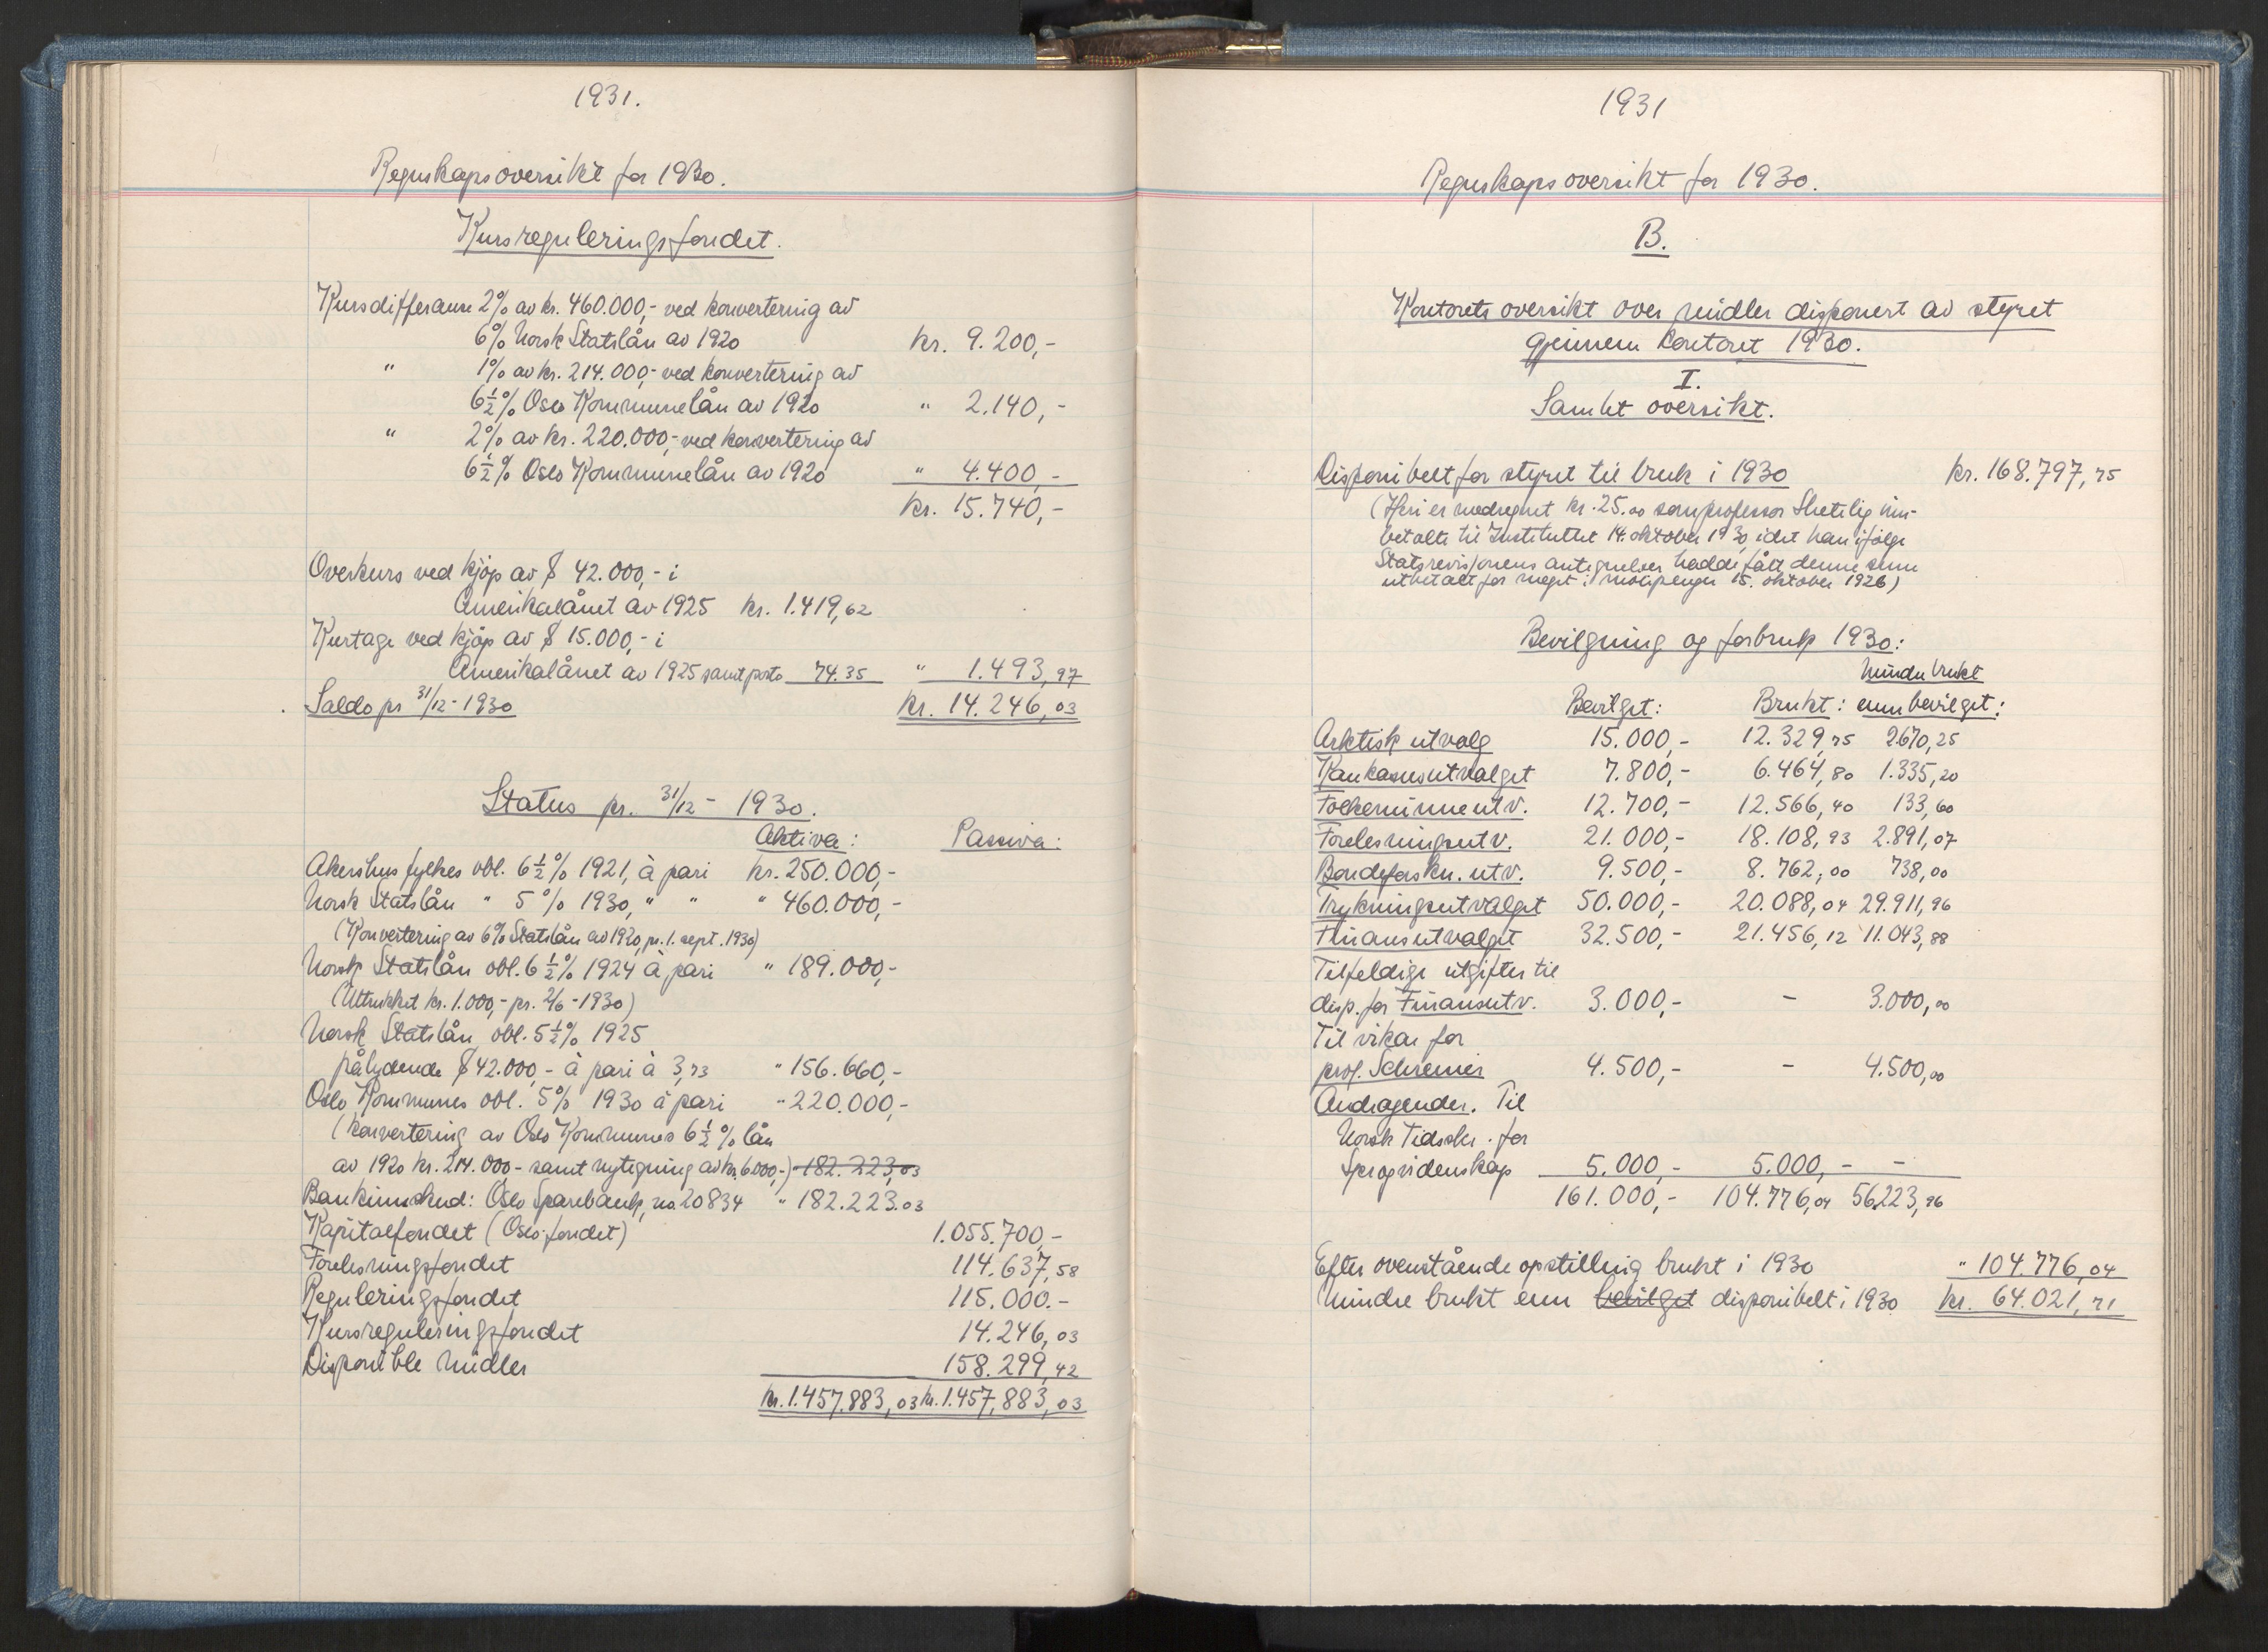 1931.
Regnskapsoversikt for 1930.
Kursreguleringsfondet.
Kursdifferanse 2% av kr. 460.000,- ved konvertering av
6% Norsk Statslån av 1920 kr. 9.200,-
" 1% av kr. 214.000,- ved konvertering av
6½% Oslo Kommunelån av 1920 " 2.140,-
" 2% av kr. 220.000,- ved konvertering av
6½% Oslo Kommunelån av 1920 " 4.400,-
kr. 15.740,-
Overkurs ved kjöp av $ 42.000,- i
Amerikalånet av 1925 kr. 1.419,62
Kurtage ved kjöp av $ 15.000,- i
Amerikalånet av 1925 samt porto 74.35 " 1.493,97
Saldo pr 31/12-1930 kr. 14.246,03
Status pr. 31/12 - 1930.
Aktiva: Passiva:
Akershus fylkes obl. 6½% 1921, à pari kr. 250.000,-
Norsk Statslån " 5% 1930, " " " 460.000,-
(Konvertering av 6% Statslån av 1920, pr. 1. sept. 1930)
Norsk Statslån obl. 6½% 1924 à pari " 189.000,-
(Uttrukket kr. 1.000,- pr. 2/6-1930)
Norsk Statslån obl. 5½% 1925
pålydende $ 42.000,- à pari à 3,73 " 156.660,-
Oslo Kommunes obl. 5% 1930 à pari " 220.000,-
(Konvertering av Oslo Kommunes 6½% lån
av 1920 kr. 214.000- samt nytegning av kr. 6.000,-) 182.223,03
Bankinnskud: Oslo Sparebank, no. 20834 " 182.223.03
Kapitalfondet (Oslo-fondet) 1.055.700,-
Forelesningsfondet 114.637,58
Reguleringsfondet 115.000.-
Kursreguleringsfondet 14.246,03
Disponible midler 158.299,42
kr. 1.457.883,03 kr. 1.457.883,03
1931
Regnskapsoversikt for 1930.
B.
Kontorets oversikt over midler disponert av styret
gjennem kontoret 1930.
I.
Samlet oversikt.
Disponibelt for styret til bruk i 1930 kr. 168.797,75
(Heri er medregnet kr. 25.00 som professor Shetelig inn-
betalte til Instituttet 14. oktober 1930, idet han ifölge
Statsrevisjonens antegnelser hadde fått denne sum
utbetalt for meget i møtepenger 15. oktober 1926)
Bevilgning og forbruk 1930:
Mindre brukt
Bevilget: Brukt: enn bevilget:
Arktisk utvalg 15.000,- 12.329,75 2670,25
Kaukasusutvalget 7.800,- 6.464,80 1.335,20
Folkeminneutv. 12.700,- 12.566,40 133,60
Forelesningsutv. 21.000,- 18.108,93 2.891,07
Bondeforskn. utv. 9.500,- 8.762,00 738,00
Trykningsutvalget 50.000,- 20.088,04 29.911,96
Finansutvalget 32.500,- 21.456,12 11.043,88
Tilfeldige utgifter til
disp. for Finansutv. 3.000,- - 3.000,00
Til vikar for
prof. Schreiner 4.500,- - 4.500,00
Andragender. Til
Norsk Tidsskr. for
Sprogvidenskap 5.000,- 5.000,- -
161.000,- 104.776,04 56.223,96
Efter ovenstående opstilling brukt i 1930 " 104.776,04
Mindre brukt enn bevilget disponibelt i 1930 kr. 64.021,71